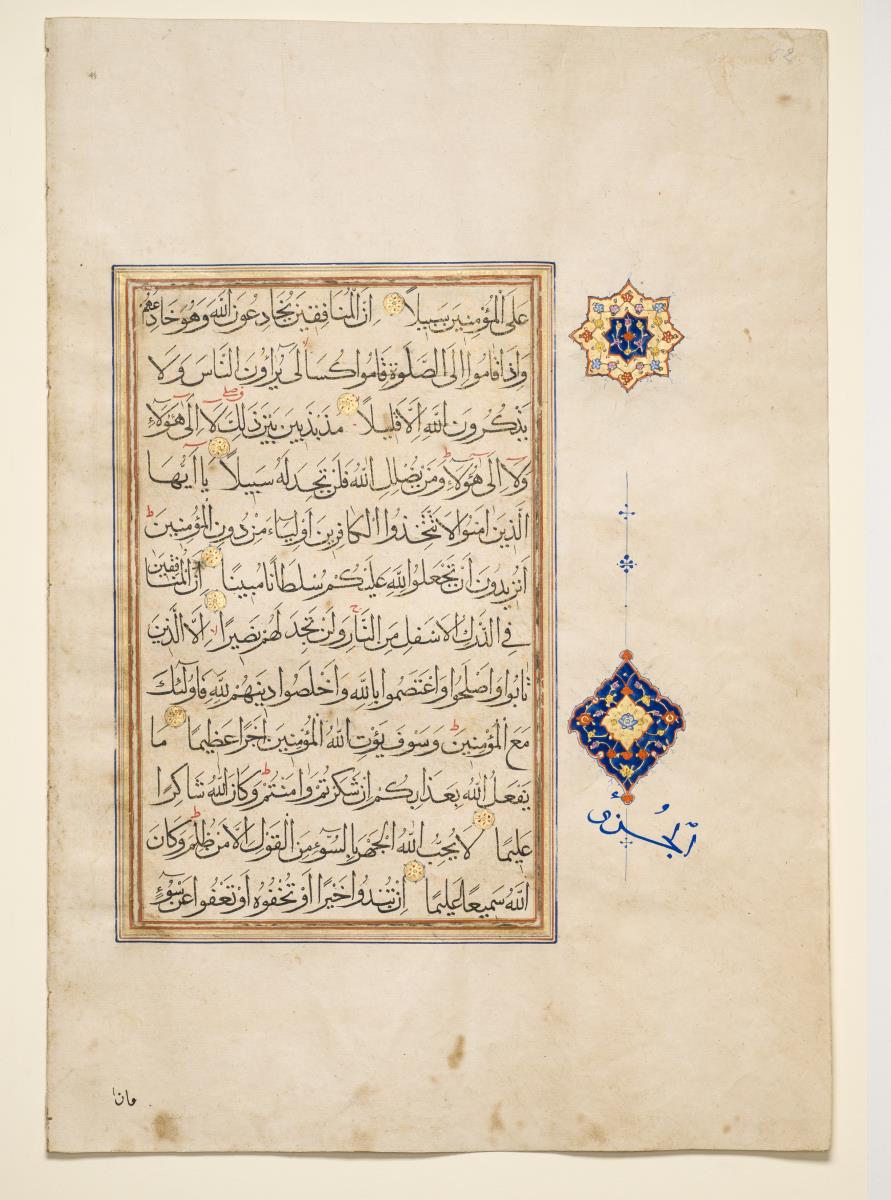 عَلَى الْمُؤْمِنِينَ سَبِيلًا إِنَّ الْمُنَافِقِينَ يُخَادِعُونَ اللَّهَ وَهُوَ خَادِعُهُمْ
وَإِذَا قَامُوا إِلَى الصَّلَوةِ قَامُوا كُسَالَى يُرَاؤُنَ النَّاسَ وَلَا
يَذْكُرُونَ اللَّهَ إِلَّا قَلِيلًا مُذَبْذَبِينَ بَيْنَ ذَلِكَ لَا إِلَى هَؤُلَاءِ
وَلَا إِلَى هَؤُلَاءِ وَمَنْ يُضْلِلِ اللَّهُ فَلَنْ تَجِدَ لَهُ سَبِيلًا يَا أَيُّهَا
الَّذِينَ آمَنُوا لَا تَتَّخِذُوا الْكَافِرِينَ أَوْلِيَاءَ مِنْ دُونِ الْمُؤْمِنِينَ
أَتُرِيدُونَ أَنْ تَجْعَلُوا لِلَّهِ عَلَيْكُمْ سُلْطَانًا مُبِينًا إِنَّ الْمُنَافِقِينَ
فِي الدَّرْكِ الْأَسْفَلِ مِنَ النَّارِ وَلَنْ تَجِدَ لَهُمْ نَصِيرًا إِلَّا الَّذِينَ
تَابُوا وَأَصْلَحُوا وَاعْتَصَمُوا بِاللَّهِ وَأَخْلَصُوا دِينَهُمْ لِلَّهِ فَأُولَئِكَ
مَعَ الْمُؤْمِنِينَ وَسَوْفَ يُؤْتِ اللَّهُ الْمُؤْمِنِينَ أَجْرًا عَظِيمًا مَا
يَفْعَلُ اللَّهُ بِعَذَابِكُمْ إِنْ شَكَرْتُمْ وَآمَنْتُمْ وَكَانَ اللَّهُ شَاكِرًا
عَلِيمًا لَا يُحِبُّ اللَّهُ الْجَهْرَ بِالسُّوءِ مِنَ الْقَوْلِ إِلَّا مَنْ ظُلِمَ وَكَانَ
اللَّهُ سَمِيعًا عَلِيمًا إِنْ تُبْدُوا خَيْرًا أَوْ تُخْفُوهُ أَوْ تَعْفُوا عَنْ سُوءٍ
الجُزء
فان